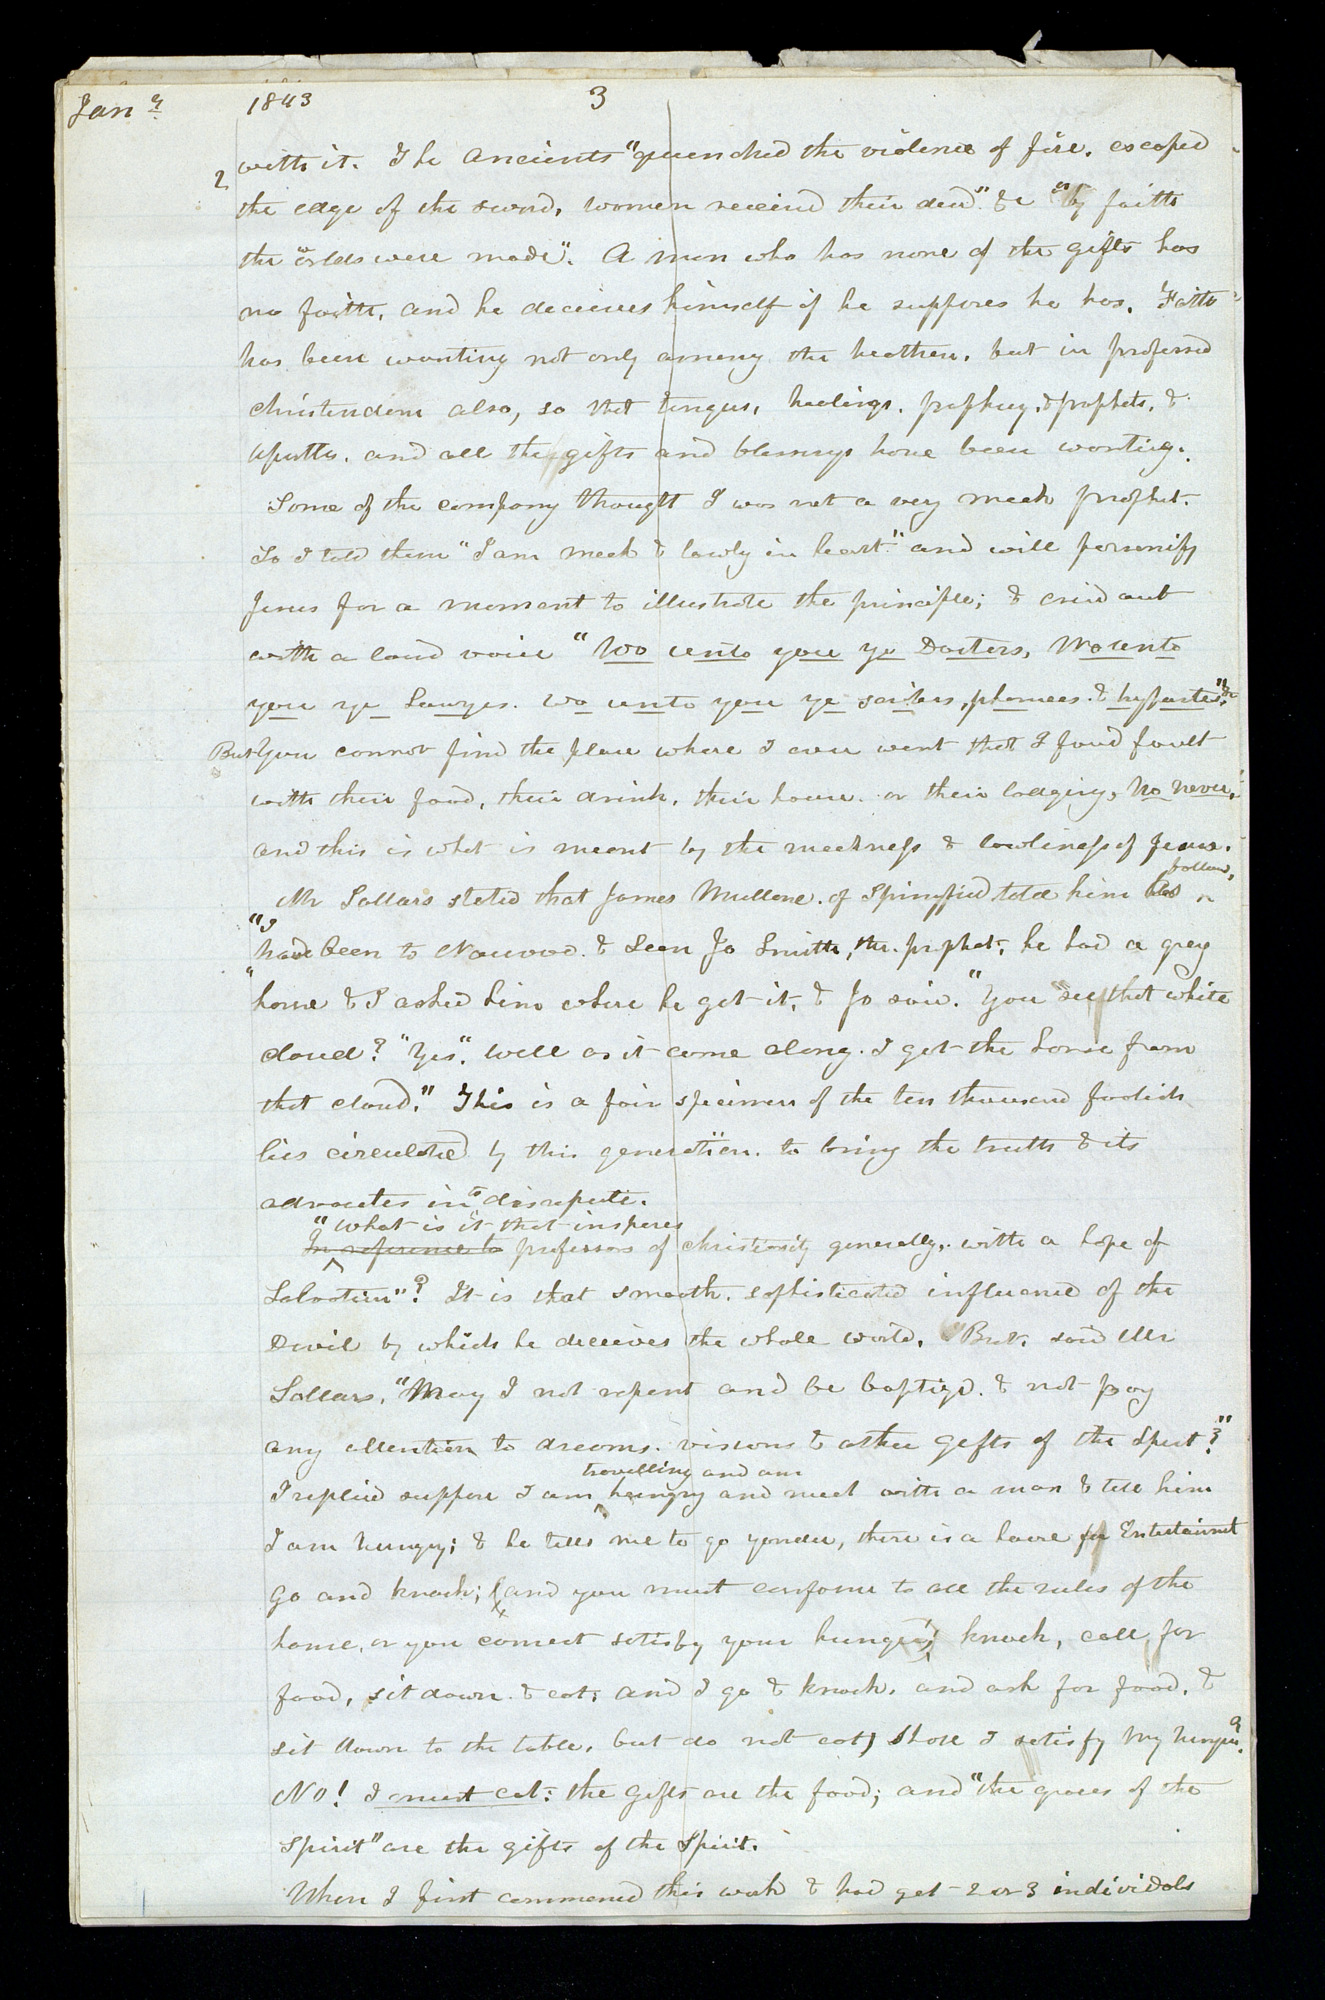 Jany 1843 3
with it. The Ancients "quenched the violence of fire, escaped
2
the edge of the sword, women received their dead" &c "by faith
the worlds were made". A man who has none of the gifts has
no faith, and he deceives himself if he supposes he has. Faith
has been wanting not only among the heathen, but in professed
christendom also, so that tongues, healings, prophecy, & prophets, &
apostles, and all the gifts and blessings have been wanting.
Some of the company thought I was not a very meek prophet.
So I told them "I am meek & lowly in heart" and will personify
Jesus for a moment to illustrate the principle; & cried out
with a loud voice "Wo unto you ye Doctors, Wo unto
you ye Lawyers. wo unto you ye scribes, pharisees. & hypocrites" &c
But you cannot find the place where I ever went that I found fault
with their food, their drink, their house, or their lodging, No never,
and this is what is meant by the meekness & lowliness of Jesus.
Mr Sollars stated that James Mullone. of Springfield told him as follows,
"I
have been to Nauvoo. & seen Jo Smith, the prophet, he had a grey
"horse & I asked him where he got it, & Jo said. "You see that white
cloud? "Yes". well as it came along. I got the horse from
that cloud." This is a fair specimen of the ten thousand foolish
lies circulated by this generation. to bring the truth & its
advocates into disrepute.
"What is it that inspires
In reference to professors of christianity generally, with a hope of
Salvation"? It is that smooth, sophisticated influence of the
Devil by which he deceives the whole world. "But, said Mr
Sollars, "May I not repent and be baptized. & not pay
any attention to dreams. visions & other gifts of the Spirit?"
travelling and am
I replied suppose I am hungry and meet with a man & tell him
I am hungry; & he tells me to go yonder, there is a house for Entertainment
go and knock; & and you must conform to all the rules of the
house, or you cannot satisfy your hunger; knock, call for
food, sit down & eat; and I go & knock. and ask for food, &
sit down to the table, but do not eat, shall I satisfy My hunger?
No! I must eat: the gifts are the food; and "the graces of the
Spirit" are the gifts of the Spirit.
When I first commenced this work & had got 2 or 3 individals